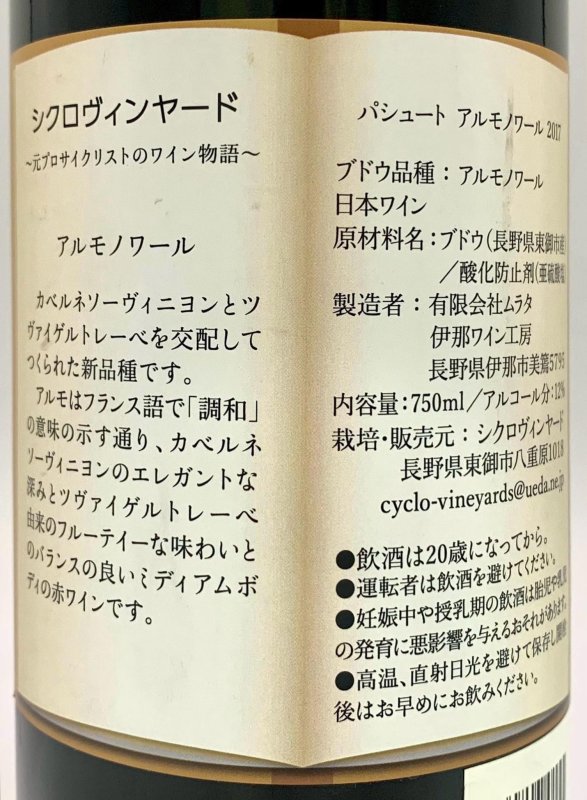 シクロヴィンヤード
～元プロサイクリストのワイン物語～
アルモノワール
カベルネソーヴィニヨンとツ
ヴァイゲルトレーベを交配して
つくられた新品種です。
アルモはフランス語で「調和」
の意味の示す通り、カベルネ
ソーヴィニヨンのエレガントな
深みとツヴァイゲルトレーベ
由来のフルーティーな味わいと
のバランスの良いミディアムボ
ディの赤ワインです。
パシュート アルモノワール 2017
ブドウ品種：アルモノワール
日本ワイン
原材料名：ブドウ（長野県東御市産
／酸化防止剤（亜硫酸塩
製造者：有限会社ムラタ
伊那ワイン工房
長野県伊那市美篶5795
内容量：750ml／アルコール分：12%
栽培・販売元：シクロヴィンヤード
長野県東御市八重原1018
cyclo-vineyards@ueda.ne.jp
●飲酒は20歳になってから。
●運転者は飲酒を避けてください。
●妊娠中や授乳期の飲酒は胎児や乳児
の発育に悪影響を与えるおそれがあります。
●高温、直射日光を避けて保存し開栓
後はお早めにお飲みください。